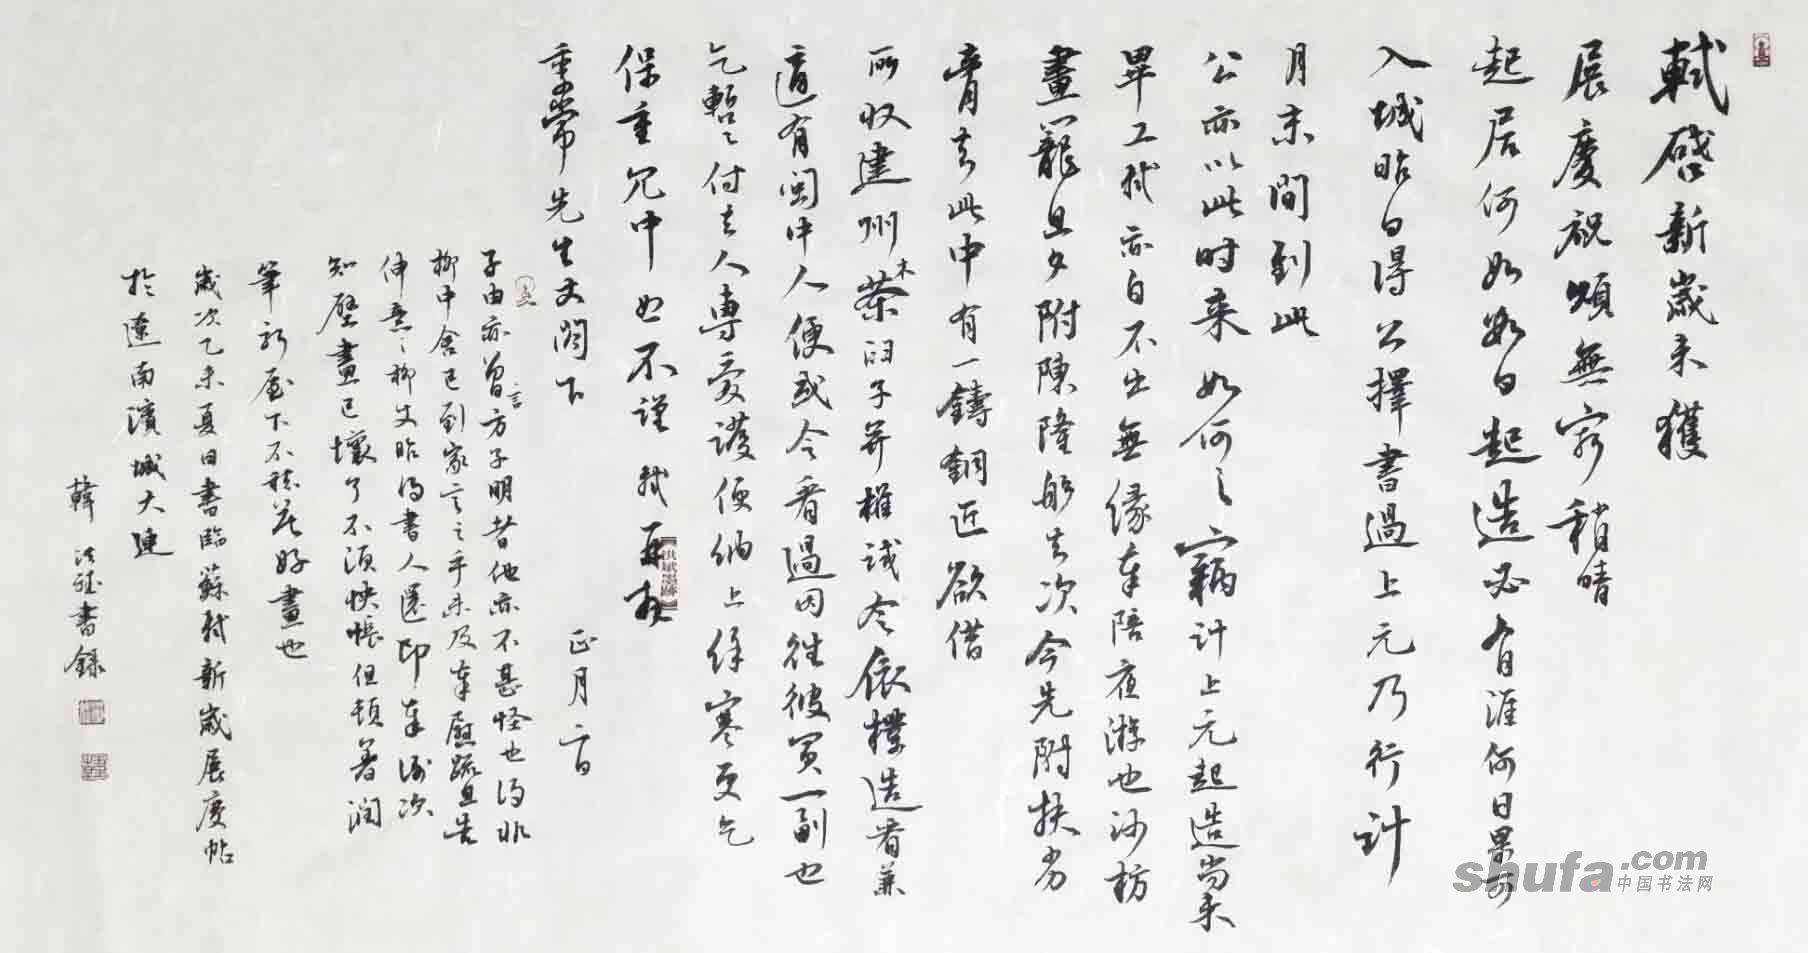 軾啓新歲未獲
展慶祝頌無窮稍晴
起居何如數日起造必有涯何日果可
入城昨日得公擇書過上元乃行計
月末間到此
公亦以此時来如何〻竊計上元起造尚未
畢工軾亦自不出無緣奉陪夜游也沙枋
畫籠旦夕附陳隆船去次今先附扶劣
膏去此中有一鑄銅匠欲借
所收建州木茶臼子并椎試令依樣造看兼
適有閩中人便或令看過因往彼買一副也
乞暫〻付去人專愛護便納上餘寒更乞
保重冗中恕不謹軾再拜
季常先生丈閣下
正月二日
子由亦曾言方子明者他亦不甚怪也得非
柳中舍已到家言之乎未及奉慰疏且告
伸意〻柳丈昨得書人還即奉謝次
知壁畫已壞了不須怏悵但頓著潤
筆新屋下不愁無好畫也
歲次乙未夏日書臨蘇軾新歲展慶帖
於遼南濱城大連
韓洪斌書錄
洪斌墨跡
shufa.com
中国书法网